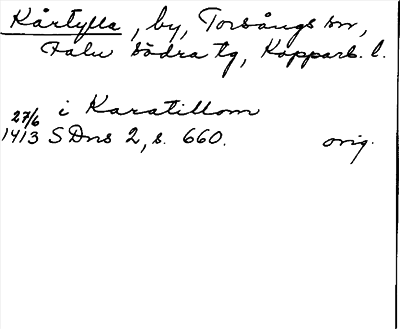 Kårtylla, by, Torsångs sn,
Falu södra tg, Kopparb. l.
27/6 i Karatillom
1413 SDns 2, s. 660. orig.